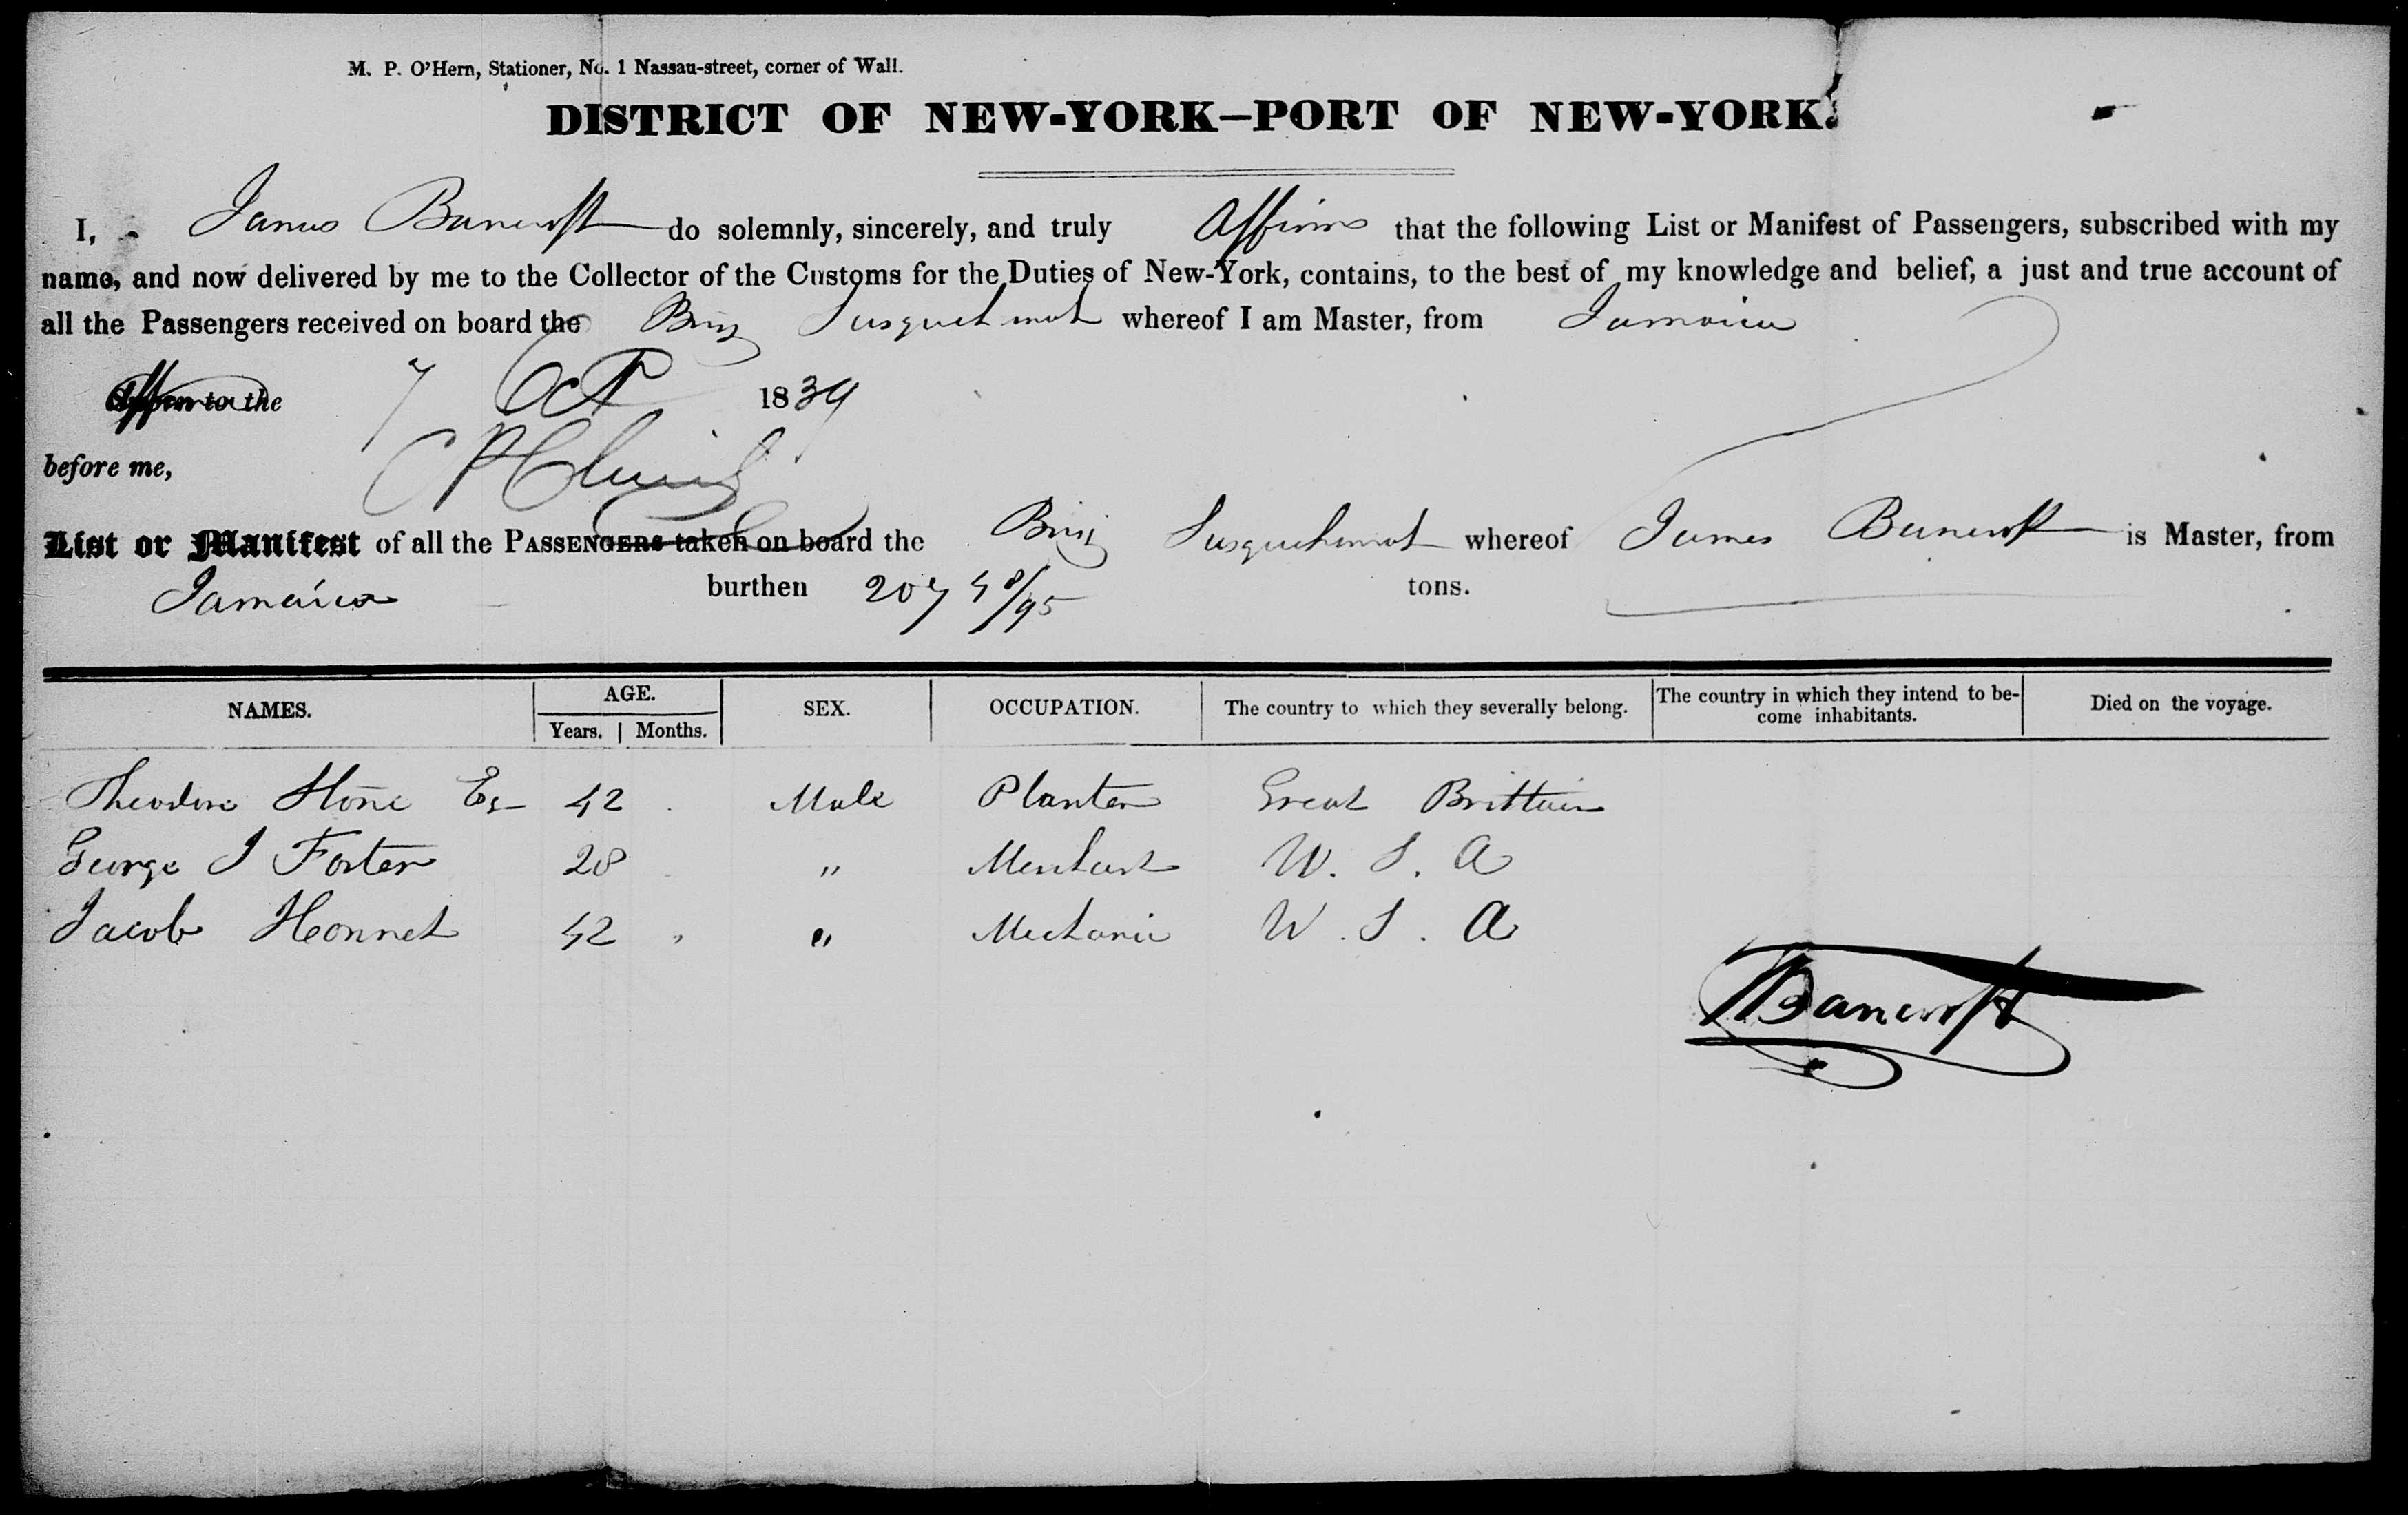 M. P. O'Hern, Stationer, No. 1 Nassau-street, corner of Wall.
DISTRICT OF NEW-YORK—PORT OF NEW-YORK.
I, James Bancroft do solemnly, sincerely, and truly Affirm that the following List or Manifest of Passengers, subscribed with my
name, and now delivered by me to the Collector of the Customs for the Duties of New-York, contains, to the best of my knowledge and belief, a just and true account of
all the Passengers received on board the Brig Susquehannah whereof I am Master, from Jamaica
to the 7 Oct 1839
before me,
List or Manifest of all the PASSENGERS taken on board the Brig Susquehannah whereof James Bancroft is Master, from
Jamaica burthen 207 48/95 tons.
NAMES. AGE. SEX. OCCUPATION. The country to which they severally belong. The country in which they intend to be-come inhabitants. Died on the voyage.
Years. Months.
Theodore Stone Esq 42 Male Planter Great Brittain
George J Forter 28 " Merchant U. S. A
Jacob Honnet 42 " Mechanic U. S. A
J Bancroft